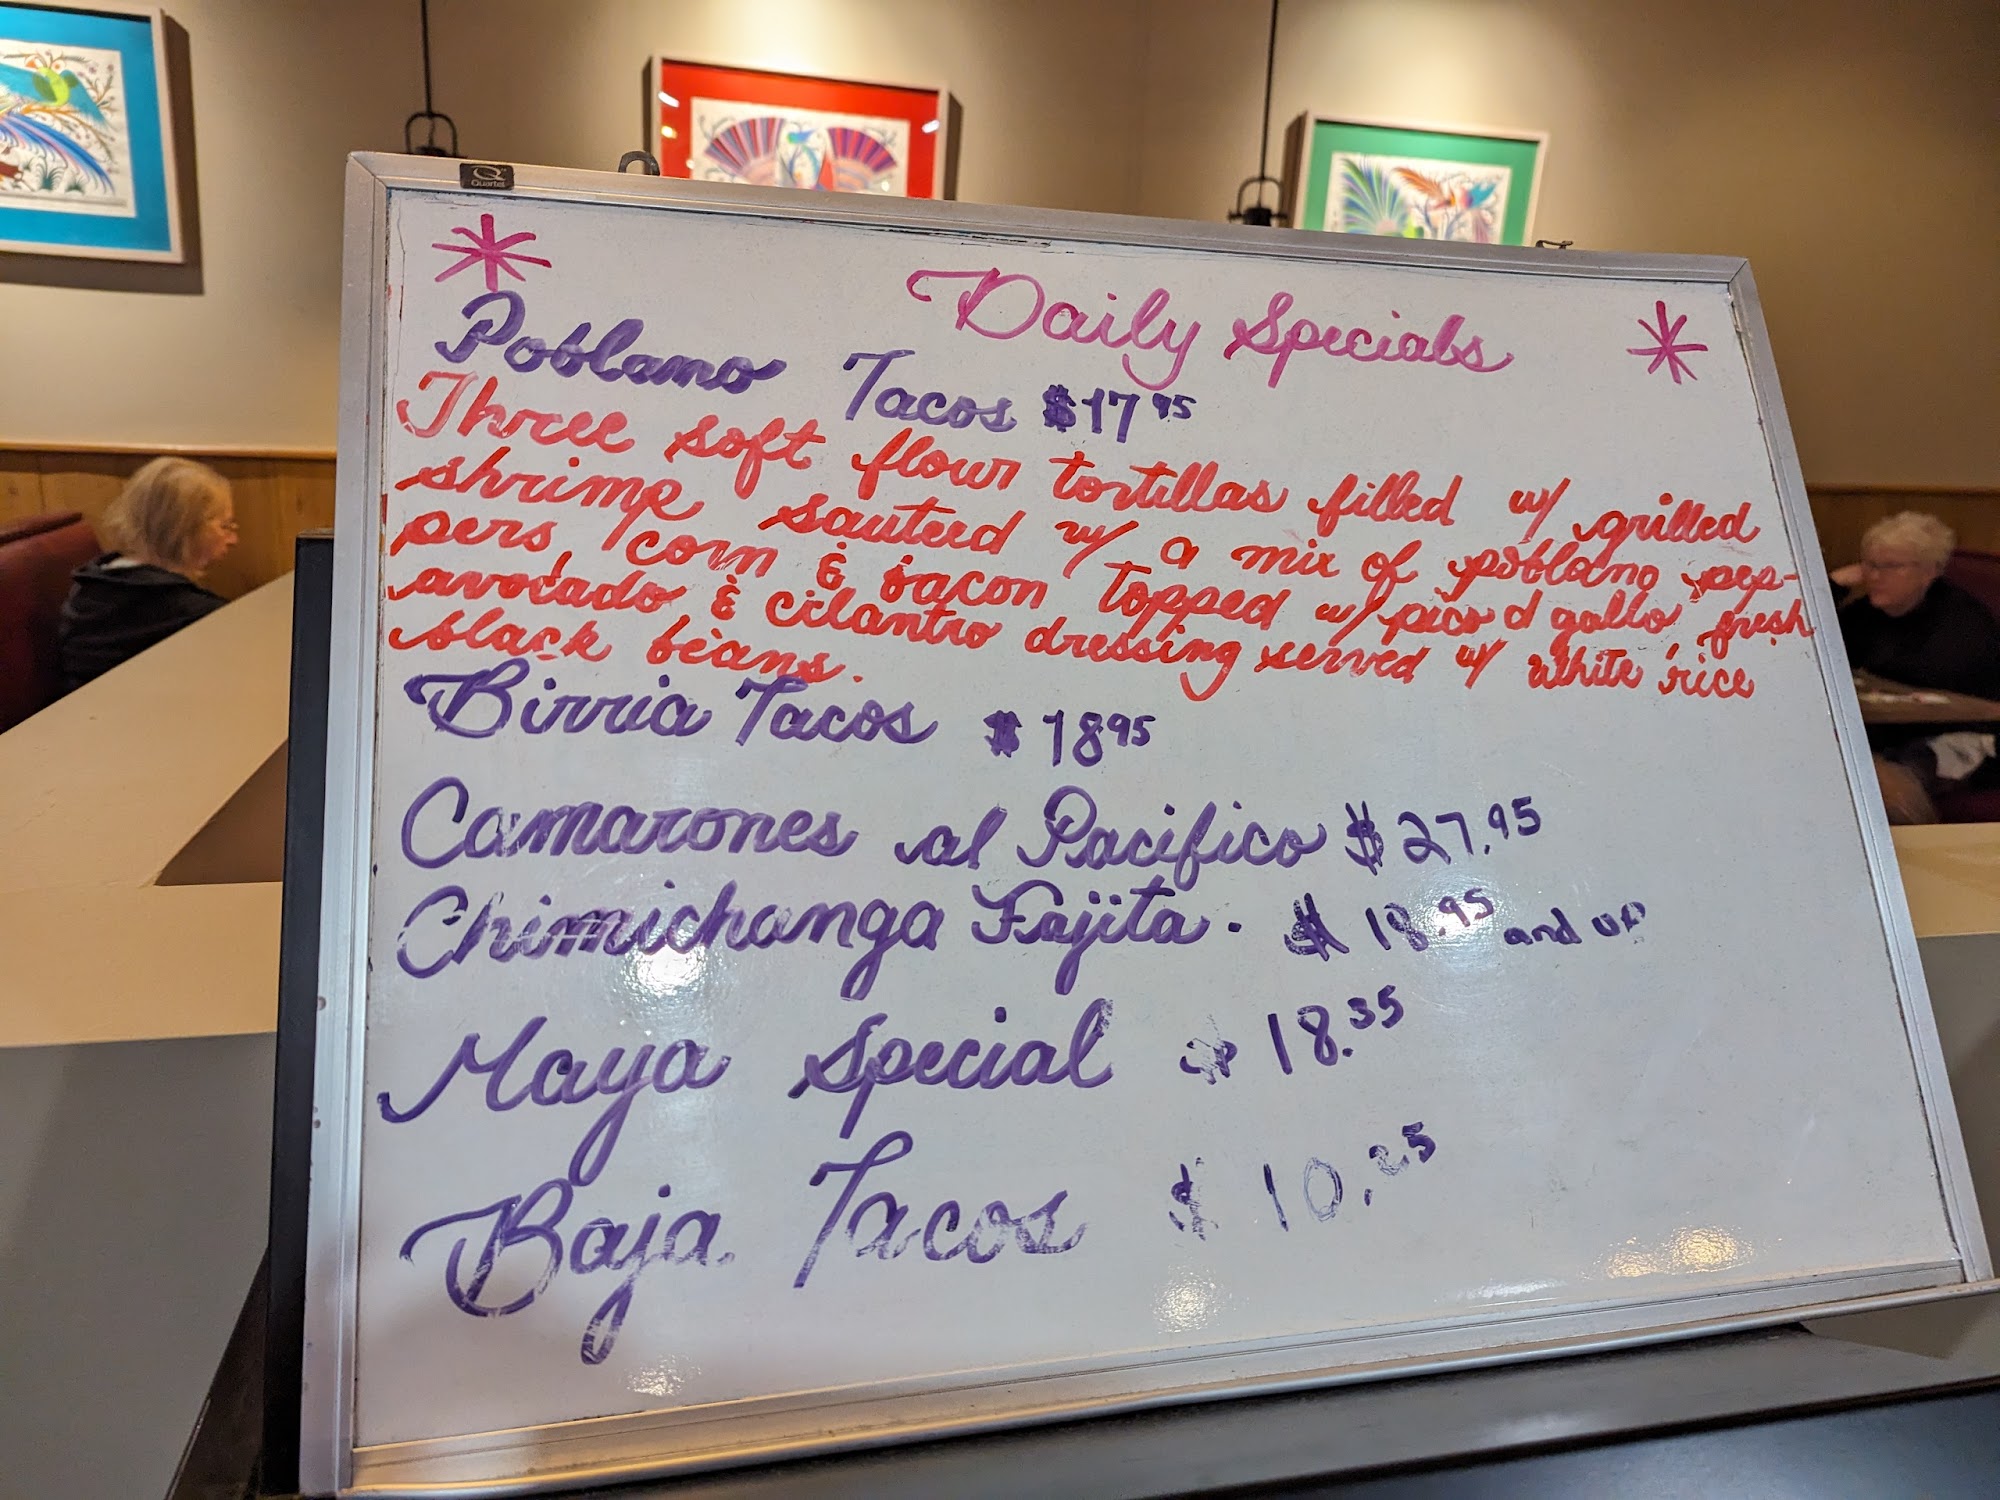 Quartet
* Daily Specials *
Poblano Tacos $17 95
Three soft flour tortillas filled w/ grilled
shrimp sauteed w/ a mix of poblano pep-
pers, corn & bacon topped w/ pico d gallo, fresh
avocado & cilantro dressing served w/ white rice
black beans.
Birria Tacos $18 95
Camarones al Pacifico $27.95
Chimichanga Fajita. $18.95 and up
Maya Special $18.35
Baja Tacos $10.25